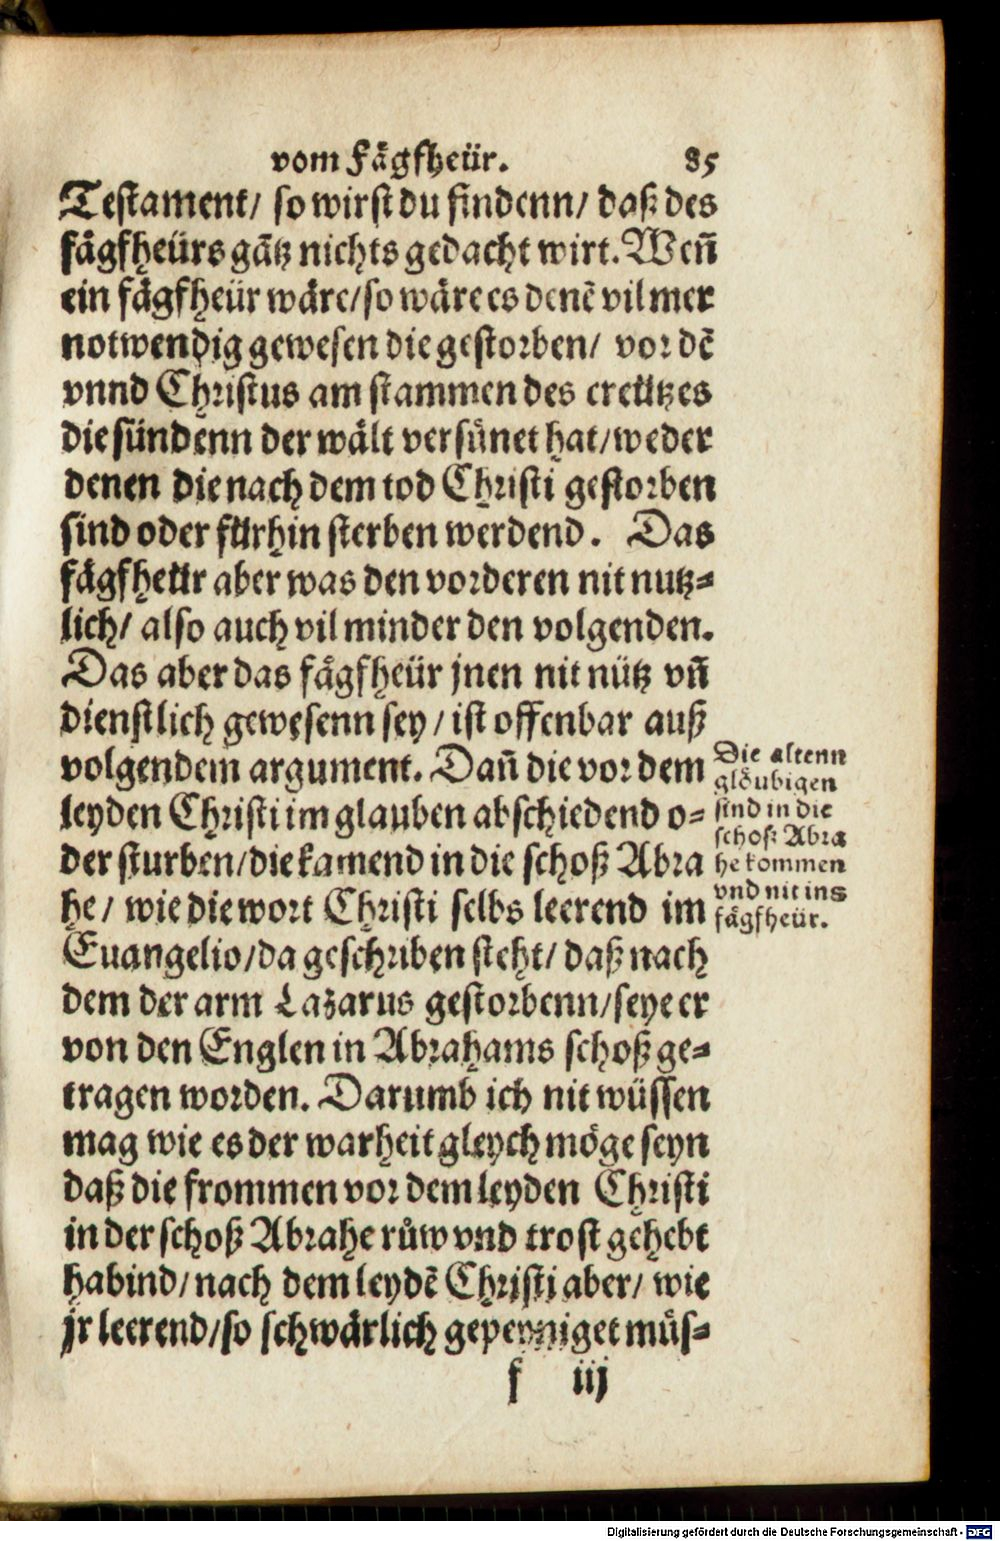 vom Fägfheür. 85
Testament/ so wirst du findenn/ daß des
fägfheürs gãtz nichts gedacht wirt. Weñ
ein fägfheür wäre/ so wäre es denẽ vil mer
notwendig gewesen die gestorben/ vor dẽ
vnnd Christus am stammen des creützes
die sündenn der wält versünet hat/ weder
denen die nach dem tod Christi gestorben
sind oder fürhin sterben werdend. Das
fägfheür aber was den vorderen nit nutz-
lich/ also auch vil minder den volgenden.
Das aber das fägfheür jnen nit nütz vñ
dienstlich gewesenn sey/ ist offenbar auß
volgendem argument. Dañ die vor dem
leyden Christi im glauben abschiedend o-
der sturben/ die kamend in die schoß Abra
he/ wie die wort Christi selbs leerend im
Euangelio/ da geschriben steht/ daß nach
dem der arm Lazarus gestorbenn/ seye er
von den Englen in Abrahams schoß ge-
tragen worden. Darumb ich nit wüssen
mag wie es der warheit gleych möge seyn
daß die frommen vor dem leyden Christi
in der schoß Abrahe růw vnd trost gehebt
habind/ nach dem leydẽ Christi aber/ wie
jr leerend/ so schwärlich gepeyniget müs-
f iij
Die altenn
glöubigen
sind in die
schoß Abra
he kommen
vnd nit ins
fägfheür.
Digitalisierung gefördert durch die Deutsche Forschungsgemeinschaft - DFG